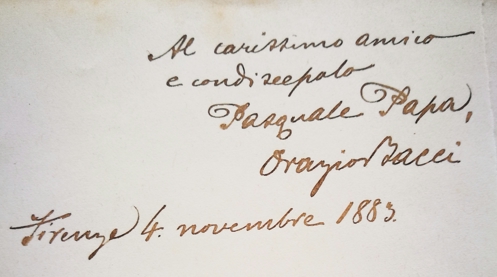 Al carissimo amico
e condiscepolo
Pasquale Papa,
Orazio Bacci
Firenze 4. novembre 1883.